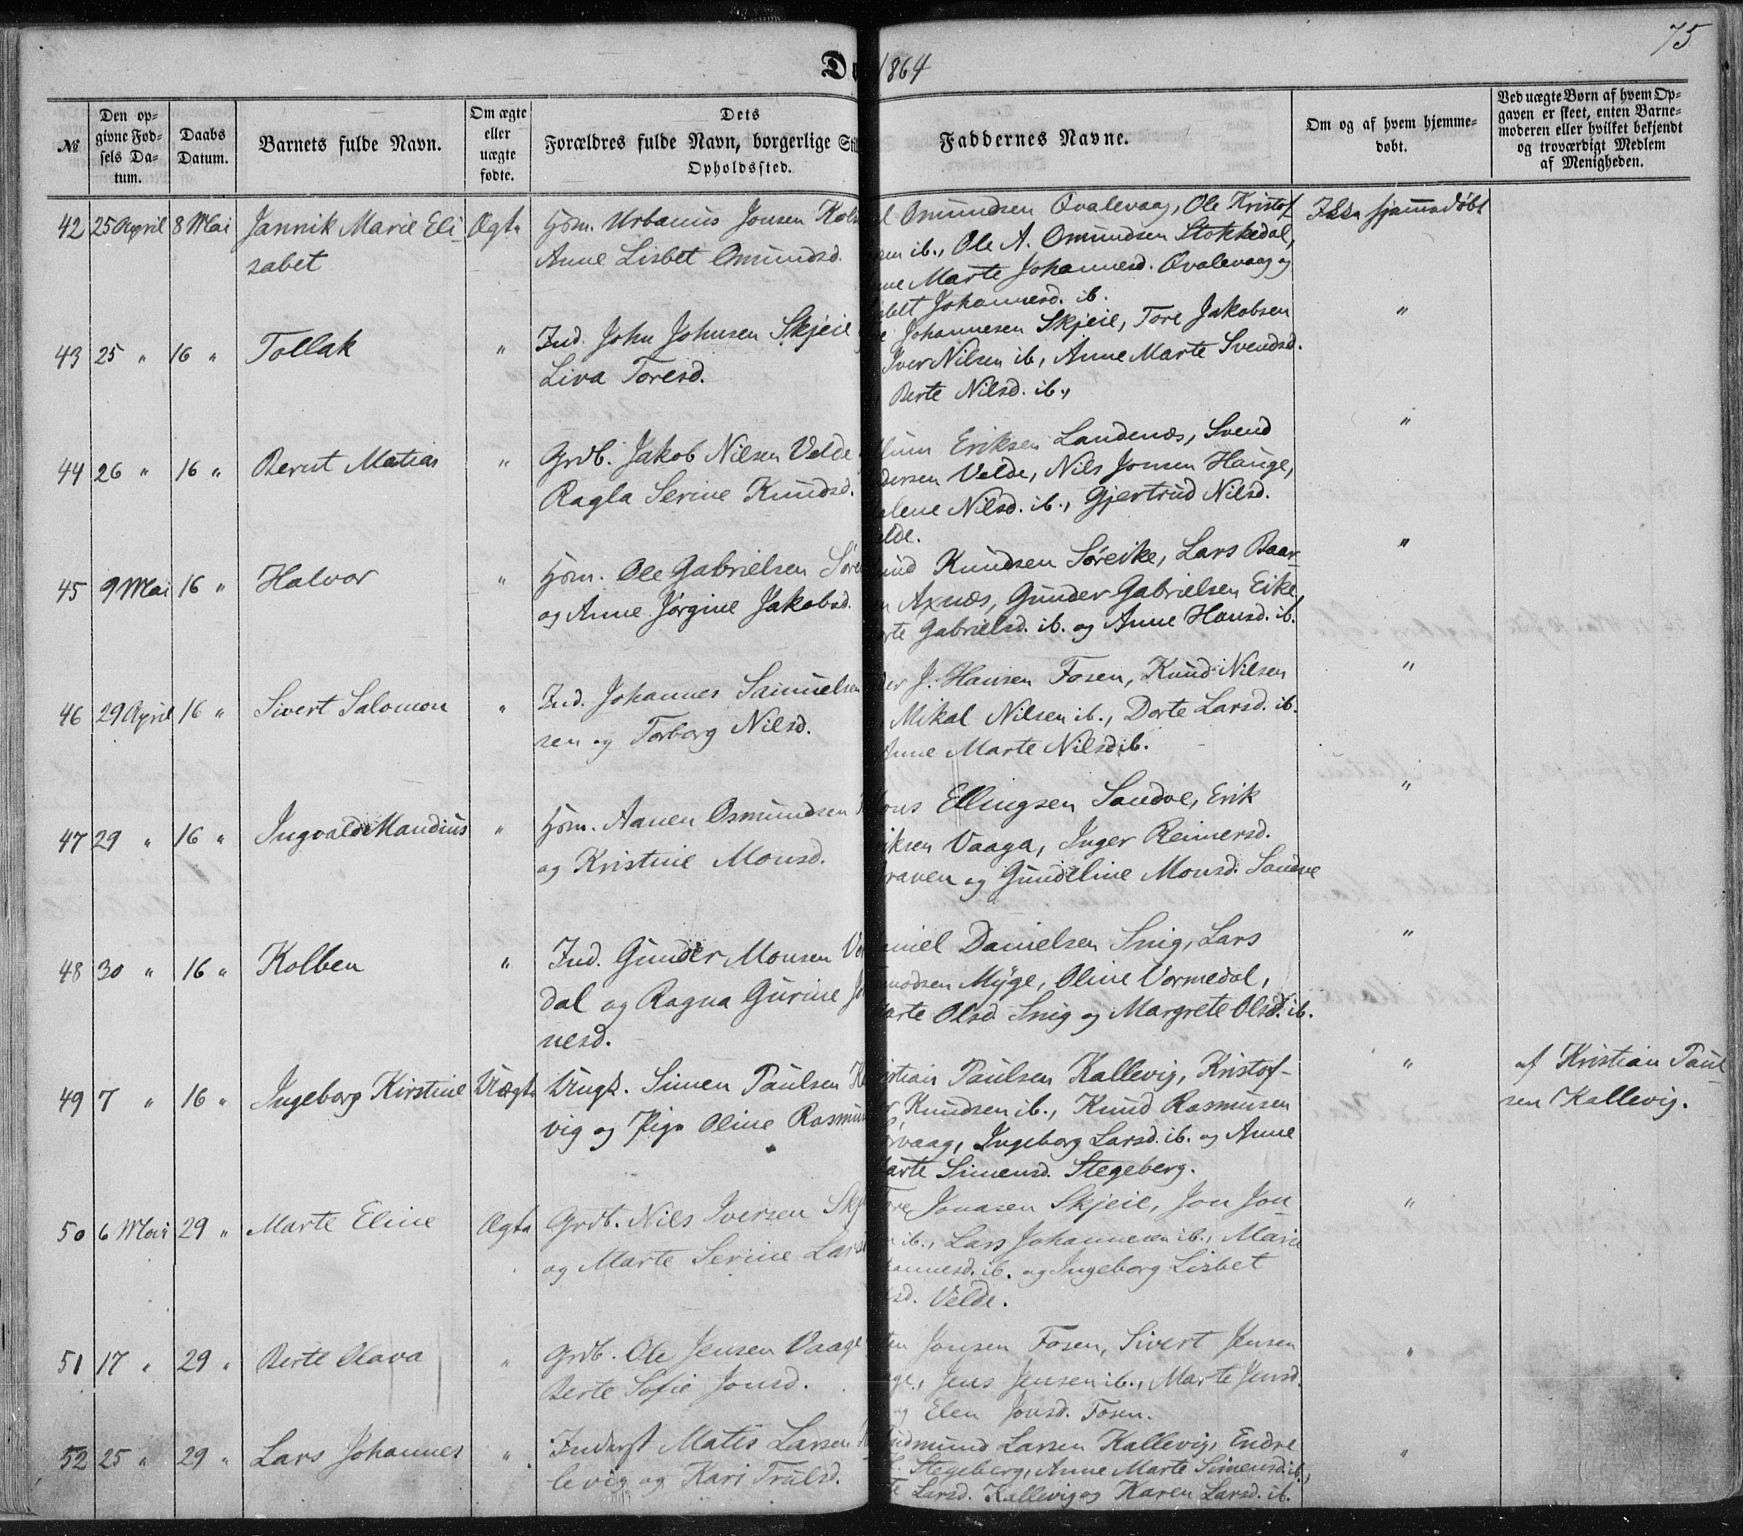 75
1864
№
Den op-
givne Fød-
sels Da-
tum.
Daabs
Datum.
Barnets fulde Navn.
Om ægte
eller
uægte
fødte.
Dets
Forældres fulde Navn, borgerlige
Opholdssted.
Faddernes Navne.
Om og af hvem hjemme-
døbt.
Ved uægte Børn af hvem Op-
gaven er skeet, enten Barne-
moderen eller hvilket bekjendt
og troværdigt Medlem
af Menigheden.
42 25 April 8 Mai Jannik Marie Eli-
sabet
Ægte
Hjm. Urbanus Jonsen
Anne Lisbet Omundsd.
Omundsen Qvalevaag, Ole Kristof
ib., Ole A. Omundsen Stokkedal,
Marte Johannesd. Qvalevaag og
Johannesd. ib.
Ikke hjemmedøbt
43 25 " 16 " Tollak
"
Ind. John Johnsen Skjeie
Liva Toresd.
Johannesen Skjeie, Tore Jakobsen
Iver Nilsen ib., Anne Marte Svendsd.
Berte Nilsd. ib.,
"
44 26 " 16 " Bernt Matias
"
Grdb. Jakob Nilsen Velde
Ragla Serine Knudsd.
Eriksen Landenæs, Svend
Velde, Nils Jonsen Hauge,
Nilsd. ib., Gjertrud Nilsd.
"
45 9 Mai 16 " Halvor
"
Hjm. Ole Gabrielsen
og Anne Jørgine Jakobsd.
Knudsen Søreike, Lars Baar-
Axnæs, Gunder Gabrielsen Eike,
Gabrielsd. ib. og Anne Hansd. ib.
"
46 29 April 16 " Sivert Salomon
"
Ind. Johannes Samuelsen
sen og Torborg Nilsd.
J. Hansen Fosen, Knud Nilsen
Mikal Nilsen ib., Dorte Larsd. ib.
Anne Marte Nilsd ib.
"
47 29 " 16 " Ingvald Mandius
"
Hjm. Aanen Osmundsen
og Kristine Monsd.
Ellingsen Sandve, Erik
Vaaga, Inger Reinersd.
og Gundeline Monsd. Sandve
"
48 30 " 16 " Kolben
"
Ind. Gunder Monsen
dal og Ragna Gurine
nesd.
Danielsen Snig, Lars
Myge, Oline Vormedal,
Marte Olsd. Snig og Margrete Olsd. ib.
"
49 7 " 16 " Ingeborg Kirstine
Uægte
Ungk. Simen Paulsen
vig og Pige Oline
Paulsen Kallevig, Kristof-
Knudsen ib., Knud Rasmusen
Ingeborg Larsd. ib. og Anne
Marte Simensd. Stegeberg.
"
af Kristian Paul-
sen Kallevig.
50 6 Mai 29 " Marte Eline
Ægte
Grdb. Nils Iversen
og Marte Serine
Tore Jonasen Skjeie, Jon Jon-
ib., Lars Johannesen ib., Marie
ib. og Ingeborg Lisbet
Velde.
"
51 17 " 29 " Berte Olava
"
Grdb. Ole Jensen Vaage
Berte Sofie Jonsd.
Jonsen Fosen, Sivert Jensen
Jens Jensen ib., Marte Jensd.
og Elen Jonsd. Fosen.
"
52 25 " 29 " Lars Johannes
"
Inderst Matis Larsen
levig og Kari Trulsd.
Gudmund Larsen Kallevig, Endre
Stegeberg, Anne Marte Simensd. ib.,
Larsd. Kallevig og Karen Larsd. ib.
"